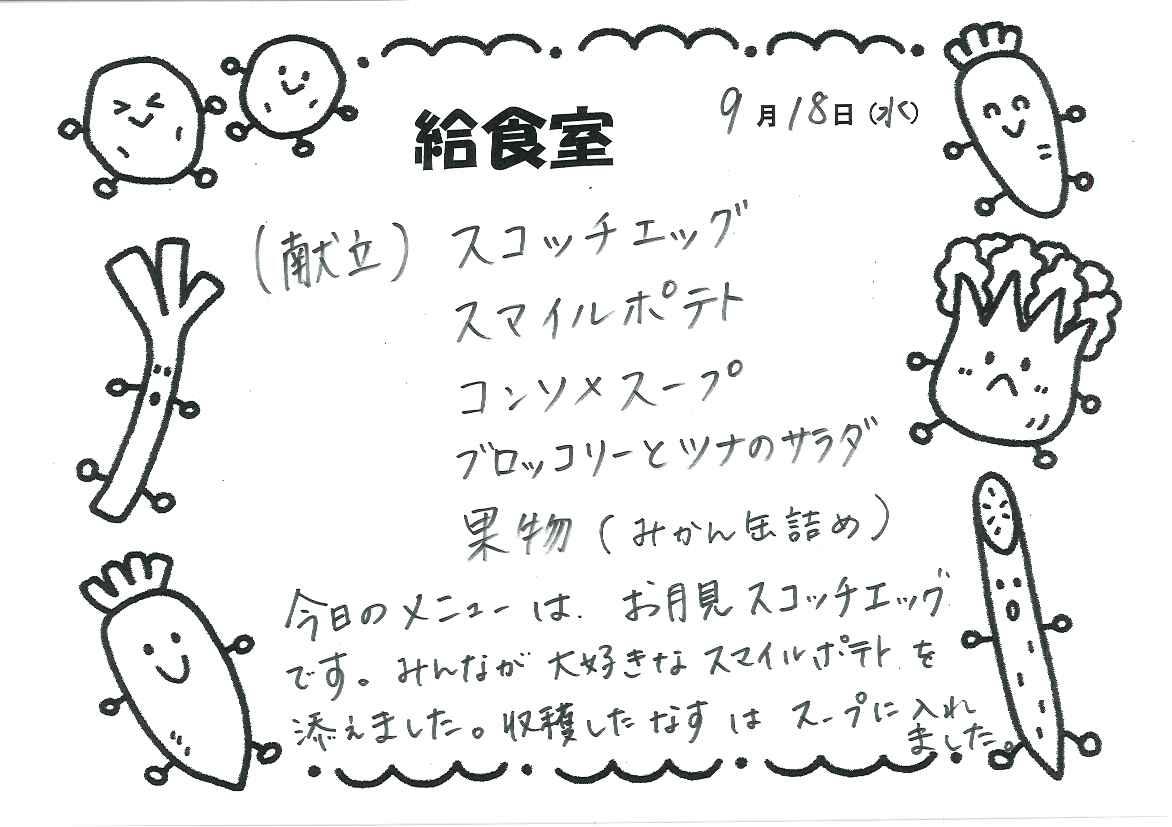 給食室
9月18日(水)
(献立) スコッチエッグ
スマイルポテト
コンソメスープ
ブロッコリーとツナのサラダ
果物(みかん缶詰め)
今日のメニューは、お月見スコッチエッグ
です。みんなが大好きなスマイルポテトを
添えました。収穫したなすはスープに入れ
ました。